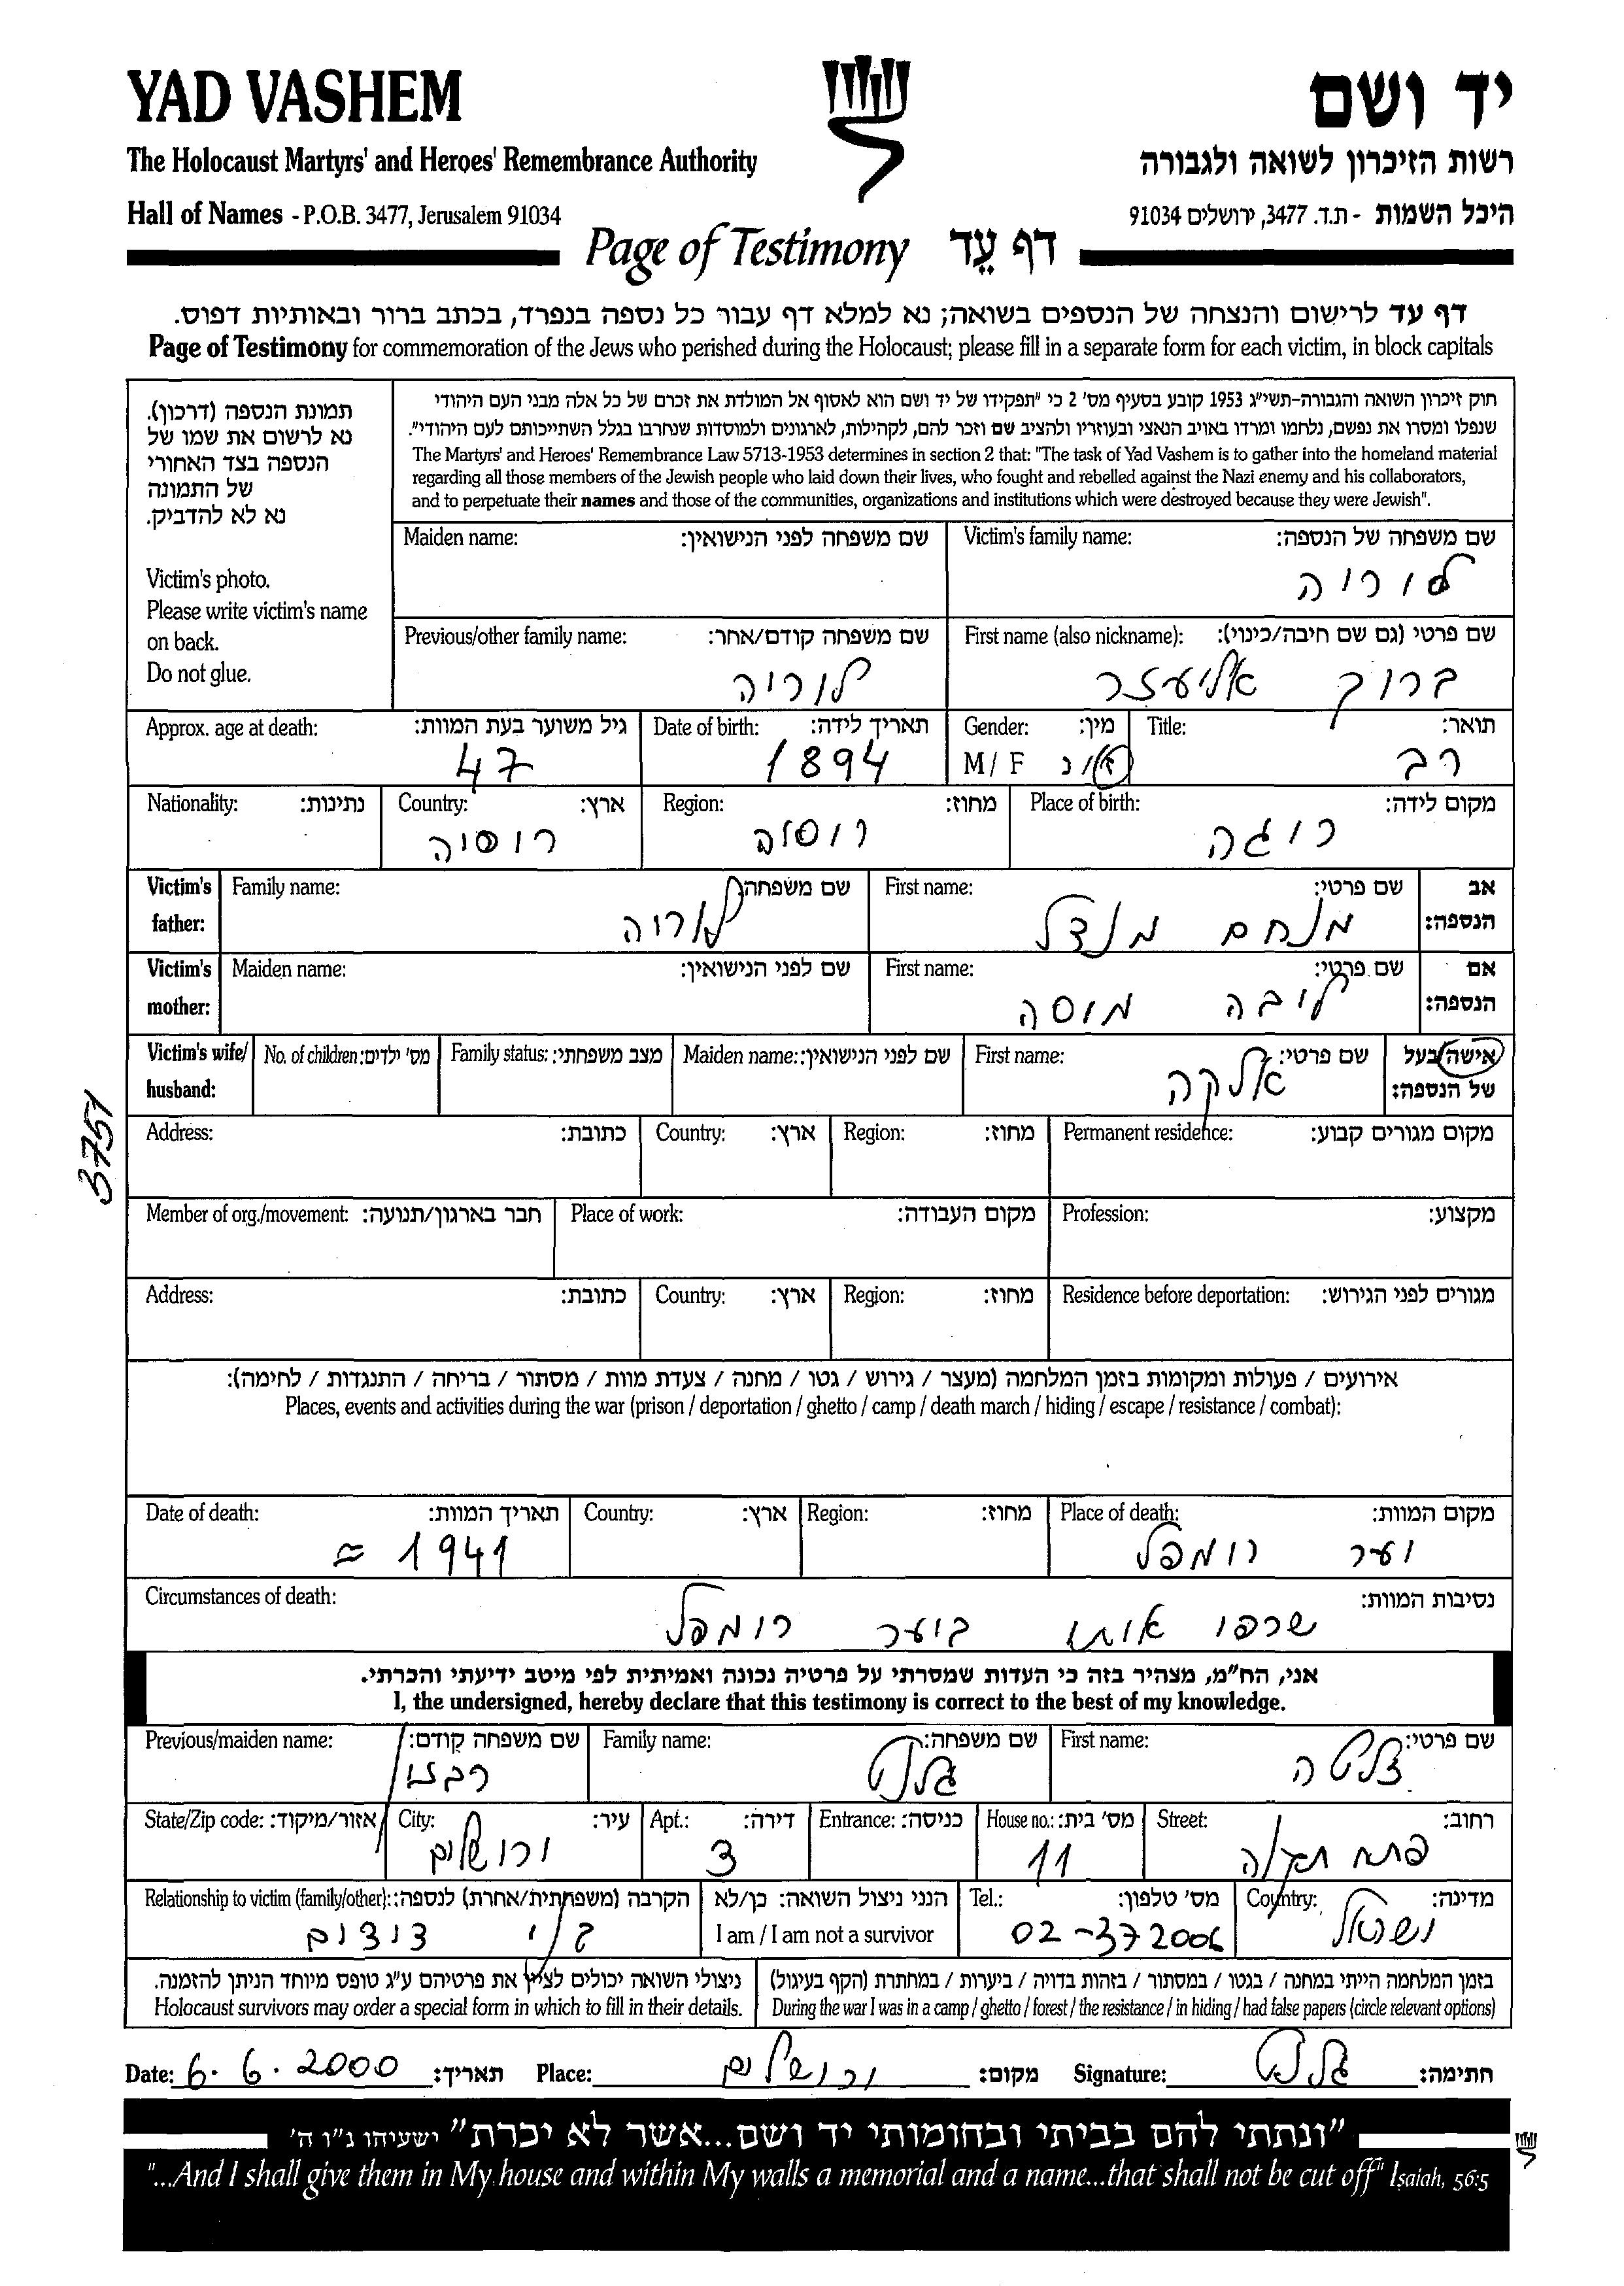 YAD VASHEM
יד ושם
The Holocaust Martyrs' and Heroes' Remembrance Authority
רשות הזיכרון לשואה ולגבורה
Hall of Names - P.O.B. 3477, Jerusalem 91034
היכל השמות - ת.ד. 3477, ירושלים 91034
Page of Testimony דף עֵד
דף עד לרישום והנצחה של הנספים בשואה; נא למלא דף עבור כל נספה בנפרד, בכתב ברור ובאותיות דפוס.
Page of Testimony for commemoration of the Jews who perished during the Holocaust; please fill in a separate form for each victim, in block capitals
תמונת הנספה (דרכון).
נא לרשום את שמו של
הנספה בצד האחורי
של התמונה
נא לא להדביק.
Victim's photo.
Please write victim's name
on back.
Do not glue.
חוק זיכרון השואה והגבורה-תשי"ג 1953 קובע בסעיף מס' 2 כי "תפקידו של יד ושם הוא לאסוף אל המולדת את זכרם של כל אלה מבני העם היהודי
שנפלו ומסרו את נפשם, נלחמו ומרדו באויב הנאצי ובעוזריו ולהציב שם וזכר להם, לקהילות, לארגונים ולמוסדות שנחרבו בגלל השתייכותם לעם היהודי".
The Martyrs' and Heroes' Remembrance Law 5713-1953 determines in section 2 that: "The task of Yad Vashem is to gather into the homeland material
regarding all those members of the Jewish people who laid down their lives, who fought and rebelled against the Nazi enemy and his collaborators,
and to perpetuate their names and those of the communities, organizations and institutions which were destroyed because they were Jewish".
Victim's family name: שם משפחה של הנספה:
לוריה
Maiden name: שם משפחה לפני הנישואין:
First name (also nickname): שם פרטי (גם שם חיבה/כינוי):
ברוך אליעזר
Previous/other family name: שם משפחה קודם/אחר:
לוריה
Title: תואר:
רב
Gender: מין:
M / F ז/נ
Date of birth: תאריך לידה:
1894
Approx. age at death: גיל משוער בעת המוות:
47
Place of birth: מקום לידה:
ריגה
Region: מחוז:
רוסיה
Country: ארץ:
רוסיה
Nationality: נתינות:
Victim's father: אב הנספה:
First name: שם פרטי:
מנחם מנדל
Family name: שם משפחה
לוריה
Victim's mother: אם הנספה:
First name: שם פרטי:
ליבה מוסה
Maiden name: שם לפני הנישואין:
Victim's wife/ husband: אישה/בעל של הנספה:
First name: שם פרטי:
אלקה
Maiden name: שם לפני הנישואין:
Family status: מצב משפחתי:
No. of children: מס' ילדים:
Permanent residence: מקום מגורים קבוע:
Region: מחוז:
Country: ארץ:
Address: כתובת:
Profession: מקצוע:
Place of work: מקום העבודה:
Member of org./movement: חבר בארגון/תנועה:
Residence before deportation: מגורים לפני הגירוש:
Region: מחוז:
Country: ארץ:
Address: כתובת:
3751
אירועים / פעולות ומקומות בזמן המלחמה (מעצר / גירוש / גטו / מחנה / צעדת מוות / מסתור / בריחה / התנגדות / לחימה):
Places, events and activities during the war (prison / deportation / ghetto / camp / death march / hiding / escape / resistance / combat):
Place of death: מקום המוות:
יער רומפל
Region: מחוז:
Country: ארץ:
Date of death: תאריך המוות:
≈ 1941
Circumstances of death: נסיבות המוות:
שרפו אותו ביער רומפל
אני, הח"מ, מצהיר בזה כי העדות שמסרתי על פרטיה נכונה ואמיתית לפי מיטב ידיעתי והכרתי.
I, the undersigned, hereby declare that this testimony is correct to the best of my knowledge.
First name: שם פרטי:
Family name: שם משפחה:
Previous/maiden name: שם משפחה קודם:
Street: רחוב:
פתח תקוה
House no.: מס' בית:
11
Entrance: כניסה:
Apt.: דירה:
3
City: עיר:
ירושלים
State/Zip code: אזור/מיקוד:
Country: מדינה:
ישראל
Tel.: מס' טלפון:
02-372006
הנני ניצול השואה: כן/לא
I am / I am not a survivor
Relationship to victim (family/other): הקרבה (משפחתית/אחרת) לנספה:
בני דודים
בזמן המלחמה הייתי במחנה / בגטו / במסתור / בזהות בדויה / ביערות / במחתרת (הקף בעיגול)
During the war I was in a camp / ghetto / forest / the resistance / in hiding / had false papers (circle relevant options)
ניצולי השואה יכולים לציין את פרטיהם ע"ג טופס מיוחד הניתן להזמנה.
Holocaust survivors may order a special form in which to fill in their details.
Date: 6.6.2000 תאריך: Place: ירושלים מקום: Signature: חתימה:
"ונתתי להם בביתי ובחומותי יד ושם...אשר לא יכרת" ישעיהו נ"ו ה'
"...And I shall give them in My house and within My walls a memorial and a name...that shall not be cut off" Isaiah, 56:5